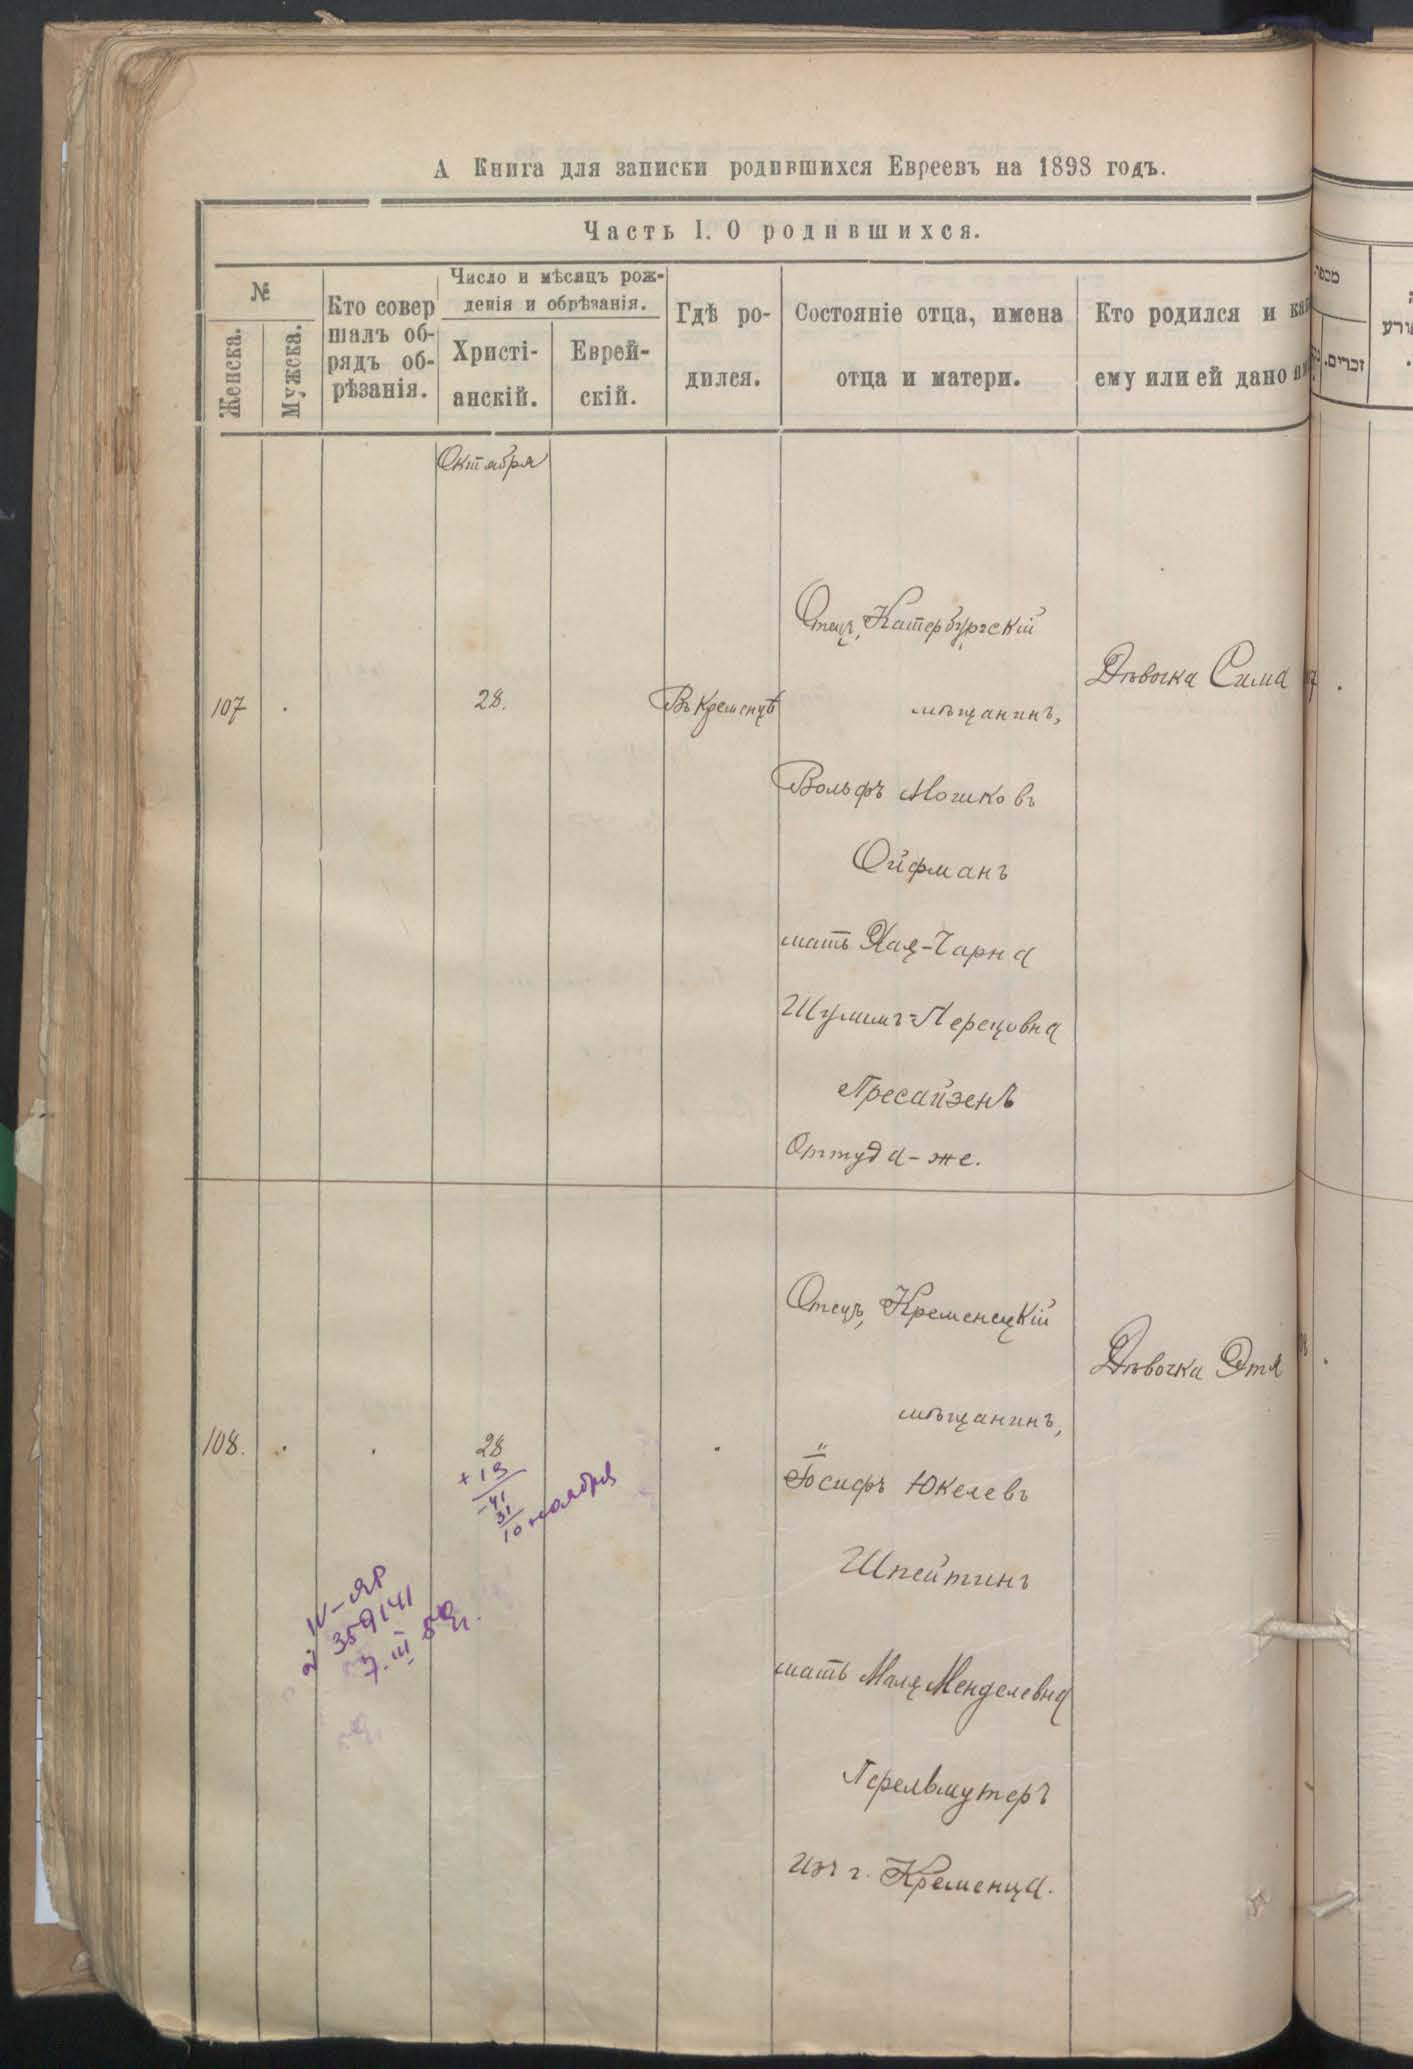 А Книга для записки родившихся Евреевъ на 1898 годъ.
Часть I. О родившихся.
№
Женска.
Мужска.
Кто совер
шалъ об-
рядъ об-
рѣзанія.
Число и мѣсяцъ рож-
денія и обрѣзанія.
Христі-
анскій.
Еврей-
скій.
Гдѣ ро-
дился.
Состояніе отца, имена
отца и матери.
Кто родился и как
ему или ей дано
זכרים.
Октября
107
28.
Въ Кременцѣ
Отецъ, Катербургскій
мѣщанинъ,
Вольфъ Мошковъ
Ойфманъ
мать Хая-Чарна
Шулимъ-Перецовна
Пресайзенъ
Оттуда-же.
Дѣвочка Сима
108.
28
+13
-41
31
10 ноября
IV-ЯР
359141
7. III 59г.
Отецъ, Кременецкій
мѣщанинъ,
Іосифъ Юкелевъ
Шпейтинъ
мать Маля Менделевна
Перельмутеръ
изъ г. Кременца.
Дѣвочка Этя